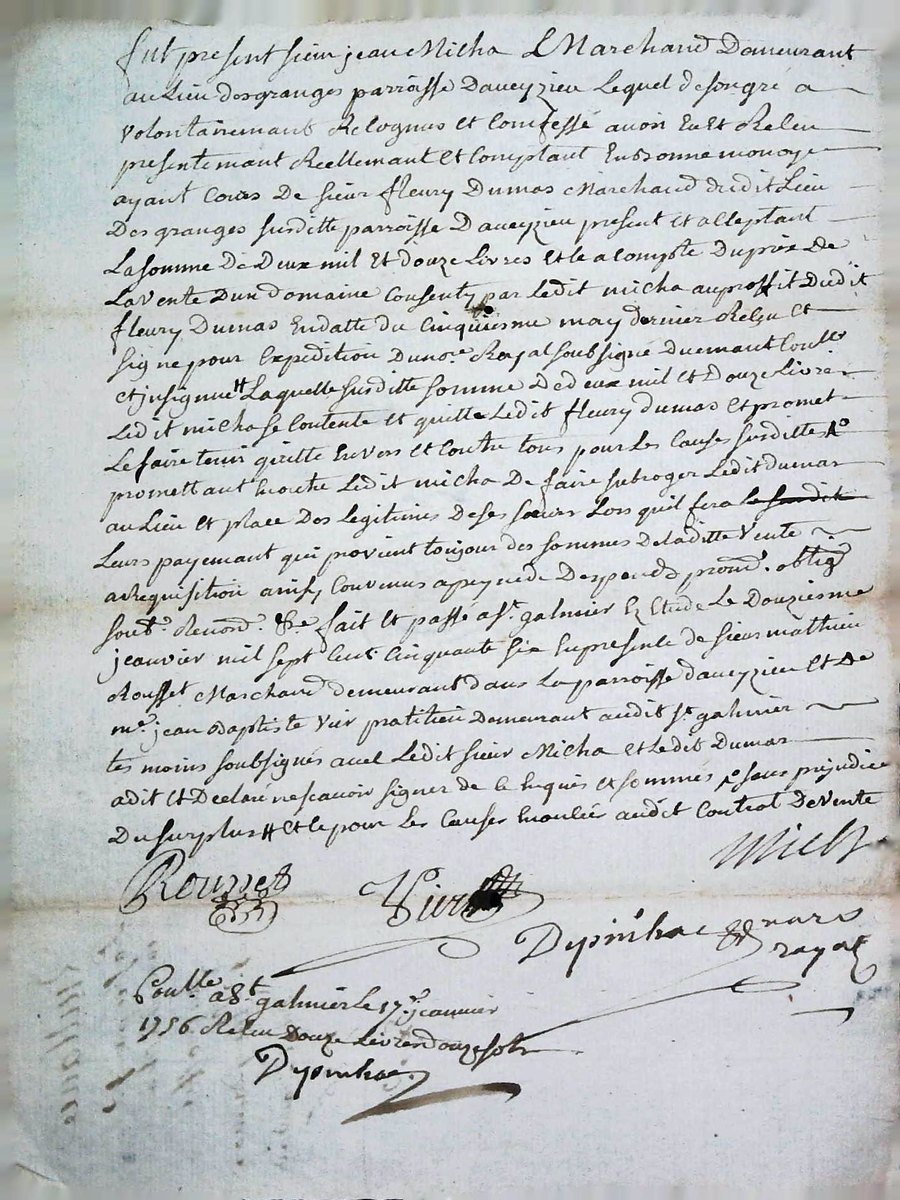 fut present sieur jean Micha Marchand Demeurant
au Lieu des granges parroisse Daveyzieu Lequel de son gré a
volontairemant Recognus et Comfessé avoir Eu et Receu
presentemant Reellemant et Comptant En bonne monoye
ayant Cours De sieur fleury Dumas Marchand dudit Lieu
Des granges susditte parroisse Daveyzieu present et acceptant
La somme De Deux mil et Douze Livres et ce a Compte Du prix De
La vente Dun Domaine Consenty par Ledit micha au proffit Dudit
fleury Dumas En datte du Cinquiesme may dernier Reçu et
signe pour Expedition Du nore. Royal soubsigné Duemant Conllé
et jnsignué Laquelle susditte somme De deux mil et Douze Livre
Ledit micha se Contente et quitte Ledit fleury dumas Et promet
Le faire tenir quitte Envers et Contre tous pour Les Causes susdittes
promettant En outre Ledit micha De faire subroger Ledit dumas
au Lieu et place Des Legitimes De ses sœurs Lors quil fera
Leurs payemant qui provient toujour des sommes De laditte Vente
a requisition ainsy Convenus a peyne de Despends prom. oblig.
soub. Renond. &c fait et passé a st. galmier Ez Etude Le Douziesme
jeanvier mil sept Cent Cinquante six En presence de sieur mathieu
Rousset Marchand demeurant dans La parroisse daveyzieu Et de
me. jean Baptiste Vier praticien Demeurant audit st. galmier
tes moins soubsignés avec Ledit sieur Micha et Ledit Dumas
a dit et Declaré ne scavoir signer de Ce Enquis et sommés sans prejudice
Du surplus et ce pour Les Causes Enoncées audit Contrat De vente
Micha
Rousset Vier
nore
royal
Conllé a St. galmier Le 17e. jeanvier
1756 Receu Douze Livres douze sols